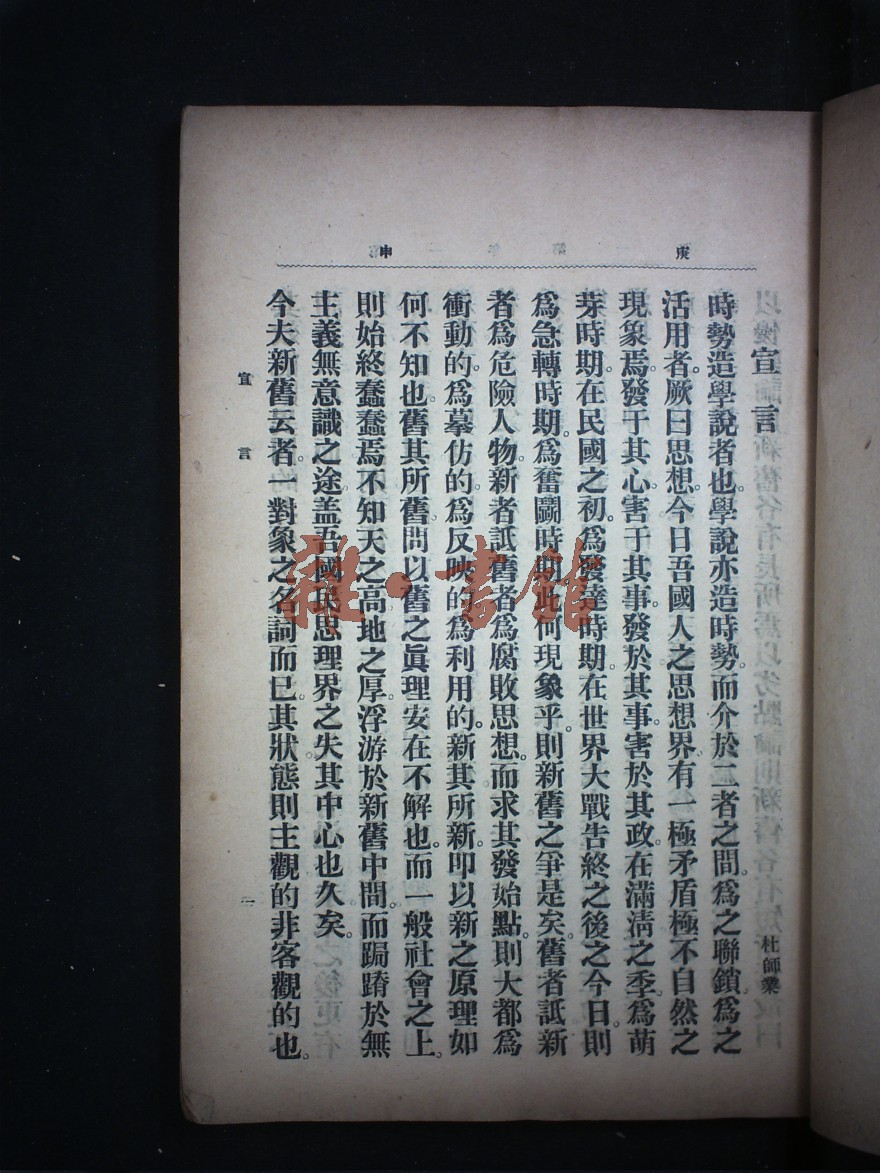 庚申
宣言
杜師業
時勢造學說者也。學說亦造時勢。而介於二者之間。爲之聯鎖。爲之
活用者。厥曰思想。今日吾國人之思想界有一極矛盾極不自然之
現象焉。發于其心。害于其事。發於其事。害於其政。在滿淸之季。爲萌
芽時期。在民國之初。爲發達時期。在世界大戰告終之後之今日。則
爲急轉時期。爲奮鬭時期。此何現象乎。則新舊之爭是矣。舊者詆新
者爲危險人物。新者詆舊者爲腐敗思想。而求其發始點。則大都爲
衝動的。爲摹仿的。爲反映的。爲利用的。新其所新。叩以新之原理如
何不知也。舊其所舊。問以舊之眞理安在不解也。而一般社會之上。
則始終蠢蠢焉不知天之高地之厚。浮游於新舊中間。而跼蹐於無
主義無意識之途。盖吾國民思理界之失其中心也久矣。
今夫新舊云者。一對象之名詞而已。其狀態則主觀的非客觀的也。
宣言
一
雜·書館